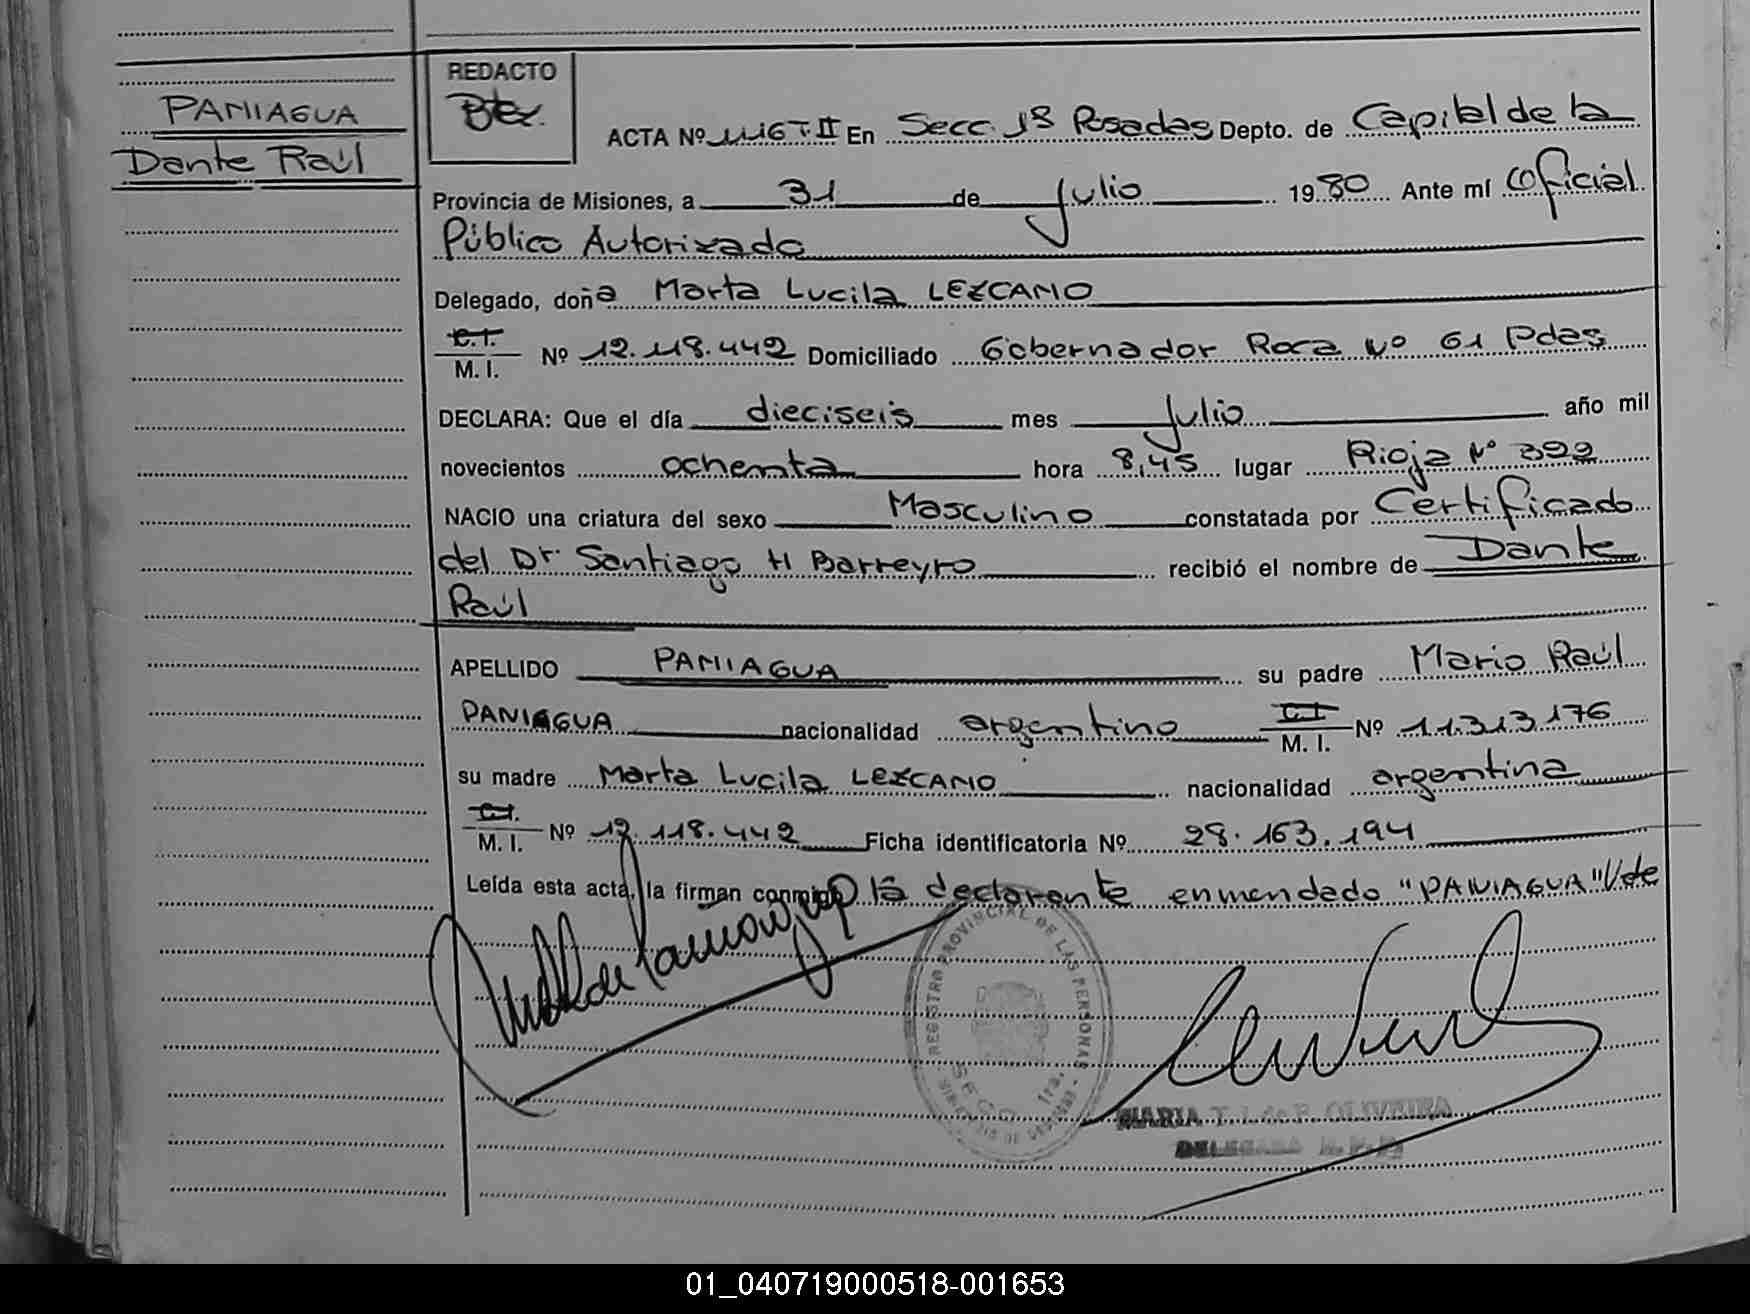 PANIAGUA
Dante Raúl
REDACTO
ACTA Nº 1116 T-II En Secc. 1ª Posadas Depto. de Capital de la
Provincia de Misiones, a 31 de Julio 1980 Ante mí Oficial
Público Autorizado
Delegado, doña Marta Lucila LEZCANO
C.I.
M. I. Nº 12.118.442 Domiciliado Gobernador Roca Nº 61 Pdas
DECLARA: Que el día dieciseis mes Julio año mil
novecientos ochenta hora 8,45 lugar Rioja Nº 392
NACIO una criatura del sexo Masculino constatada por Certificado
del Dr. Santiago H Barreyro recibió el nombre de Dante
Raúl
APELLIDO PANIAGUA su padre Mario Raúl
PANIAGUA nacionalidad argentino C.I.
M. I. Nº 11.313.176
su madre Marta Lucila LEZCANO nacionalidad argentina
C.I.
M. I. Nº 12.118.442 Ficha identificatoria Nº 28.163.194
Leída esta acta, la firman conmigo la declarante enmendado "PANIAGUA" Vale
REGISTRO PROVINCIAL DE LAS PERSONAS
SECC. 1ra.
MARIA T. L. de P. OLIVEIRA
DELEGADA R. P. P.
01_040719000518-001653